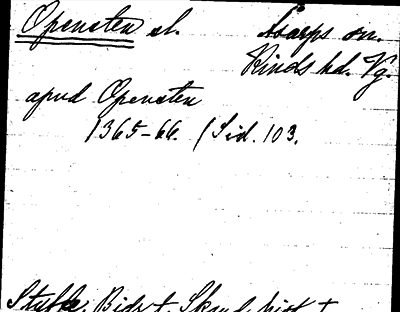 Opensten sl. Skarps sn.
Kinds hd. Vg.
apud Opensten
1365-66. (Sid. 103.
Styffe, Bidr. t. Skand. hist